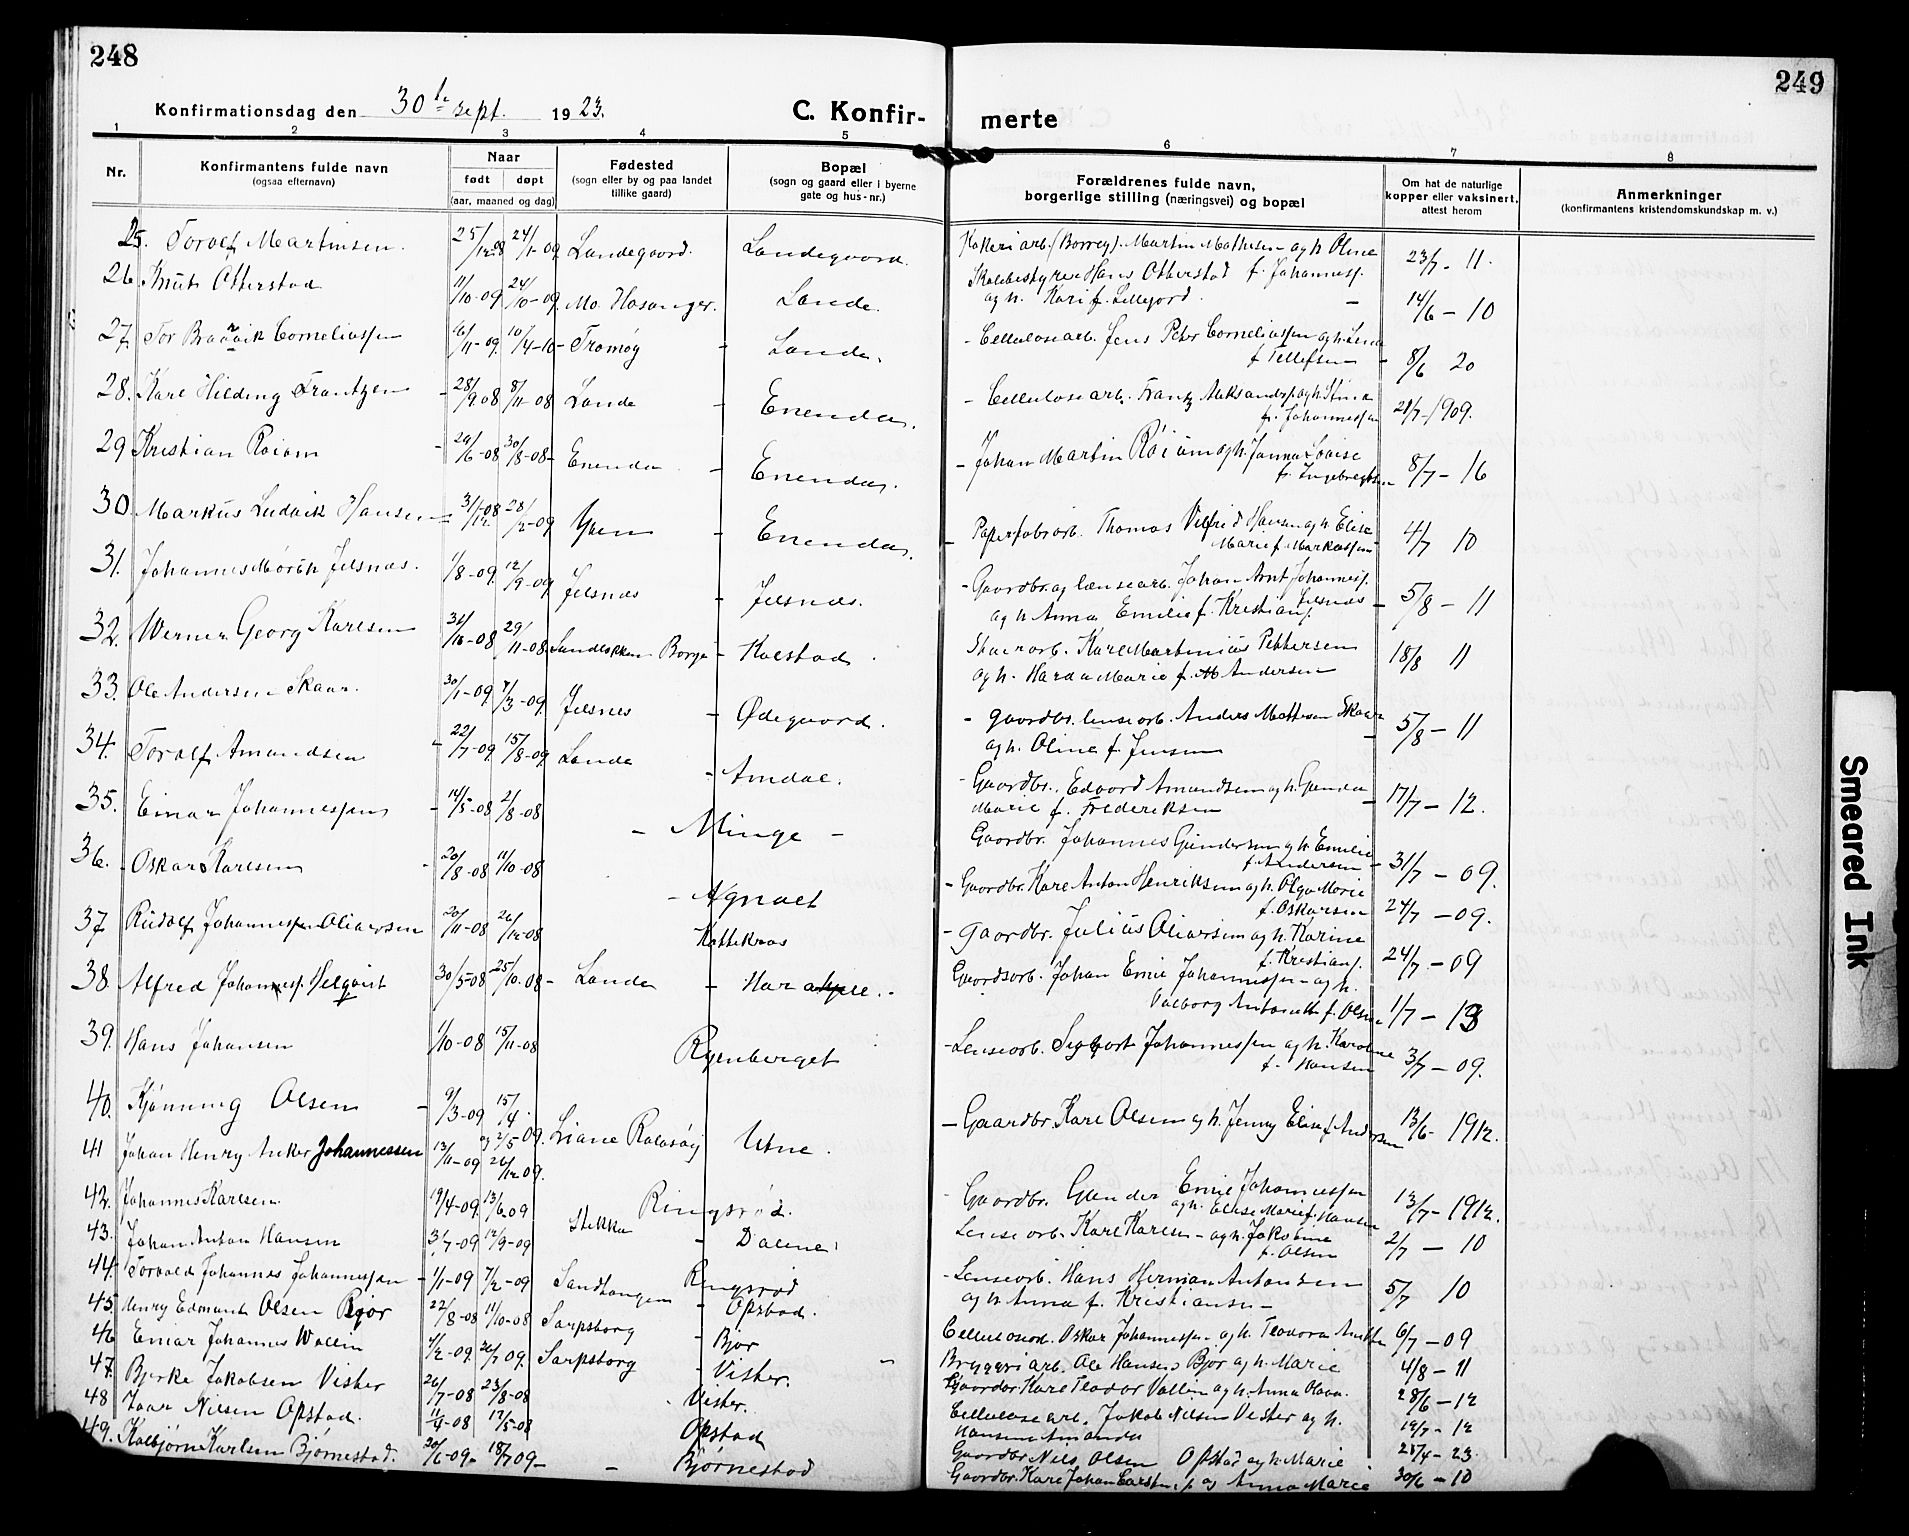 248
249
Konfirmationsdag den 30te sept. 1923.
C. Konfir-
merte
1 2 3 4 5 6 7 8
Nr.
Konfirmantens fulde navn
(ogsaa efternavn)
Naar
født døpt
(aar, maaned og dag)
Fødested
(sogn eller by og paa landet
tillike gaard)
Bopæl
(sogn og gaard eller i byerne
gate og hus-nr.)
Forældrenes fulde navn,
borgerlige stilling (næringsvei) og bopæl
Om hat de naturlige
kopper eller vaksinert,
attest herom
Anmerkninger
(konfirmantens kristendomskundskap m. v.)
25. Torolf Martinsen. 25/12-08 24/1-09 Landegaard. Landegaard. Martin Mathisen og h. Oline 23/7-11.
26. Knut Otterstad 11/10-09 24/10-09 Mo. Hosanger. Lande. Skolebestyrer Hans Otterstad f. Johannesp.
og h. Kari f. Lillejord. 14/6-10
27. Tor Brattvik Corneliussen 16/11-09. 10/4-10- Tromøy - Lande. - Cellulosearb. Jens Peter Corneliussen og h. Lena
f. Tellefsen 8/6 20
28. Karl Hilding Frantzen 28/9-08 8/11-08 Lande - Enenda. - Cellulosearb. Frantz Aleksandersp. og h. Stina
fr. Johannessen 21/7-1909.
29 Kristian Roiom - 29/6-08 30/8-08- Enenda - Enenda. - Johan Martin Roium og h. Janna Lovise
fr. Ingebregtsen 8/7-16
30. Markus Ludvik Hansen 31/12-08 28/2-09 Yven - Enenda. - Papirfabr.arb. Thomas Vilfrid Hansen og h. Elise
Marie f. Markussen 4/7 10
31. Johannes Jelsnæs. 1/8-09. 12/9-09 Jelsnæs - Jelsnæs. - Gaardbr. og lænsearb. Johan Arnt Johannesp. Jelsnæs
og h. Anna Emilie f. Kristians. 5/8-11
32. Werner Georg Karlsen 31/10-08 29/11-08 Sandbakken Borge - Kalstad. Karl Martinius Pettersen
og h. Harda Marie f. Andersen 18/8 11
33. Ole Andersen Skaar. 30/1-09. 7/3-09. Jelsnes - Ødegaard. - Gaardbr. lensearb. Anders Mathisen Skaar
og h. Oline f. Jensen 5/8-11
34. Torolf Amundsen 22/7-09. 15/8-09. Lande - Amdal. - Gaardbr. Edvard Amundsen og h. Gunda
Marie f. Frederiksen 17/7-12.
35. Einar Johannessen - 14/5-08 2/8-08 - Minge - Gaardbr. Johannes Gundersen og h. Emilie
f. Andersen 31/7-09.
36. Oskar Karlsen 20/8-08 11/10-08 - Agnalt - Gaardbr. Karl Anton Henriksen og h. Olga Marie
f. Oskarsen 24/7-09.
37. Rudolf Johannessen Oliversen 20/11-08 26/12-08 Kattekraas - Gaardbr. Julius Oliversen og h. Karine
f. Kristians. 24/7-09
38. Alfred Johannesp. Helqvist 30/5-08 25/10-08- Lande - Gaardsarb. Johan Emil Johannessen og h.
Valborg Antonette f. Olsen 1/7-13
39. Hans Johansen 1/10-08 15/11-08 Ryenberget - Lensearb. Sigvart Johannessen og h. Karoline
f. Hansen 3/7-09.
40. Kjønnug Olsen - 9/3-09 15/4. Liane Rolvsøy Utne. - Gaardbr. Karl Olsen og h. Jenny Elise f. Andersen 13/6-1912.
41 Johan Henry Anker Johannessen 13/11-09 26/12-09. Ringsrød. Gaardbr. Gunder Emil Johannessen
og h. Elise Marie f. Hansen 13/7-1912.
42. Johannes Karlsen 19/4-09. 13/6-09 Stekka - Dalene. Lensearb. Karl Karlsen - og h. Jakobine
f. Olsen 2/7-10
43. Johan Anton Hansen 3/7-09 12/9-09 Ringsrød - Lensearb. Hans Herman Antonsen
og h. Anna f. Kristiansen - 5/7 10
44. Torvald Johannes Johannessen - 1/1-09 7/2-09 Sandtangen - Opstad. Cellulosearb. Oskar Johannessen og h. Teodora 6/7-09
45. Henry Edmund Olsen Bjor 22/8-08 11/10-08 Sarpsborg - Bjor Bryggeriarb. Ole Hansen Bjor og h. Marie 4/8-11
46 Einar Johannes Wallin 4/2-09. 26/7 09. Sarpsborg - Vister. Gaardbr. Karl Teodor Vallin og h. Anna Hova. 28/6-12
47. Bjerke Jakobsen Vister 26/7-08 23/8-08 Vister. Cellulosearb. Jakob Nilsen Vister og h.
Hansine Amanda 19/7-12
48 Ivar Nilsen Opstad. 11/4-08 17/5-08 Opstad Gaardbr. Nils Olsen Opstad og h. Marie 21/4-23.
49. Kolbjørn Karlsen Bjørnestad. 20/6-09. 18/7 09- - Bjørnestad Gaardbr. Karl Johan og Anna Marie 30/6-10
Smeared Ink